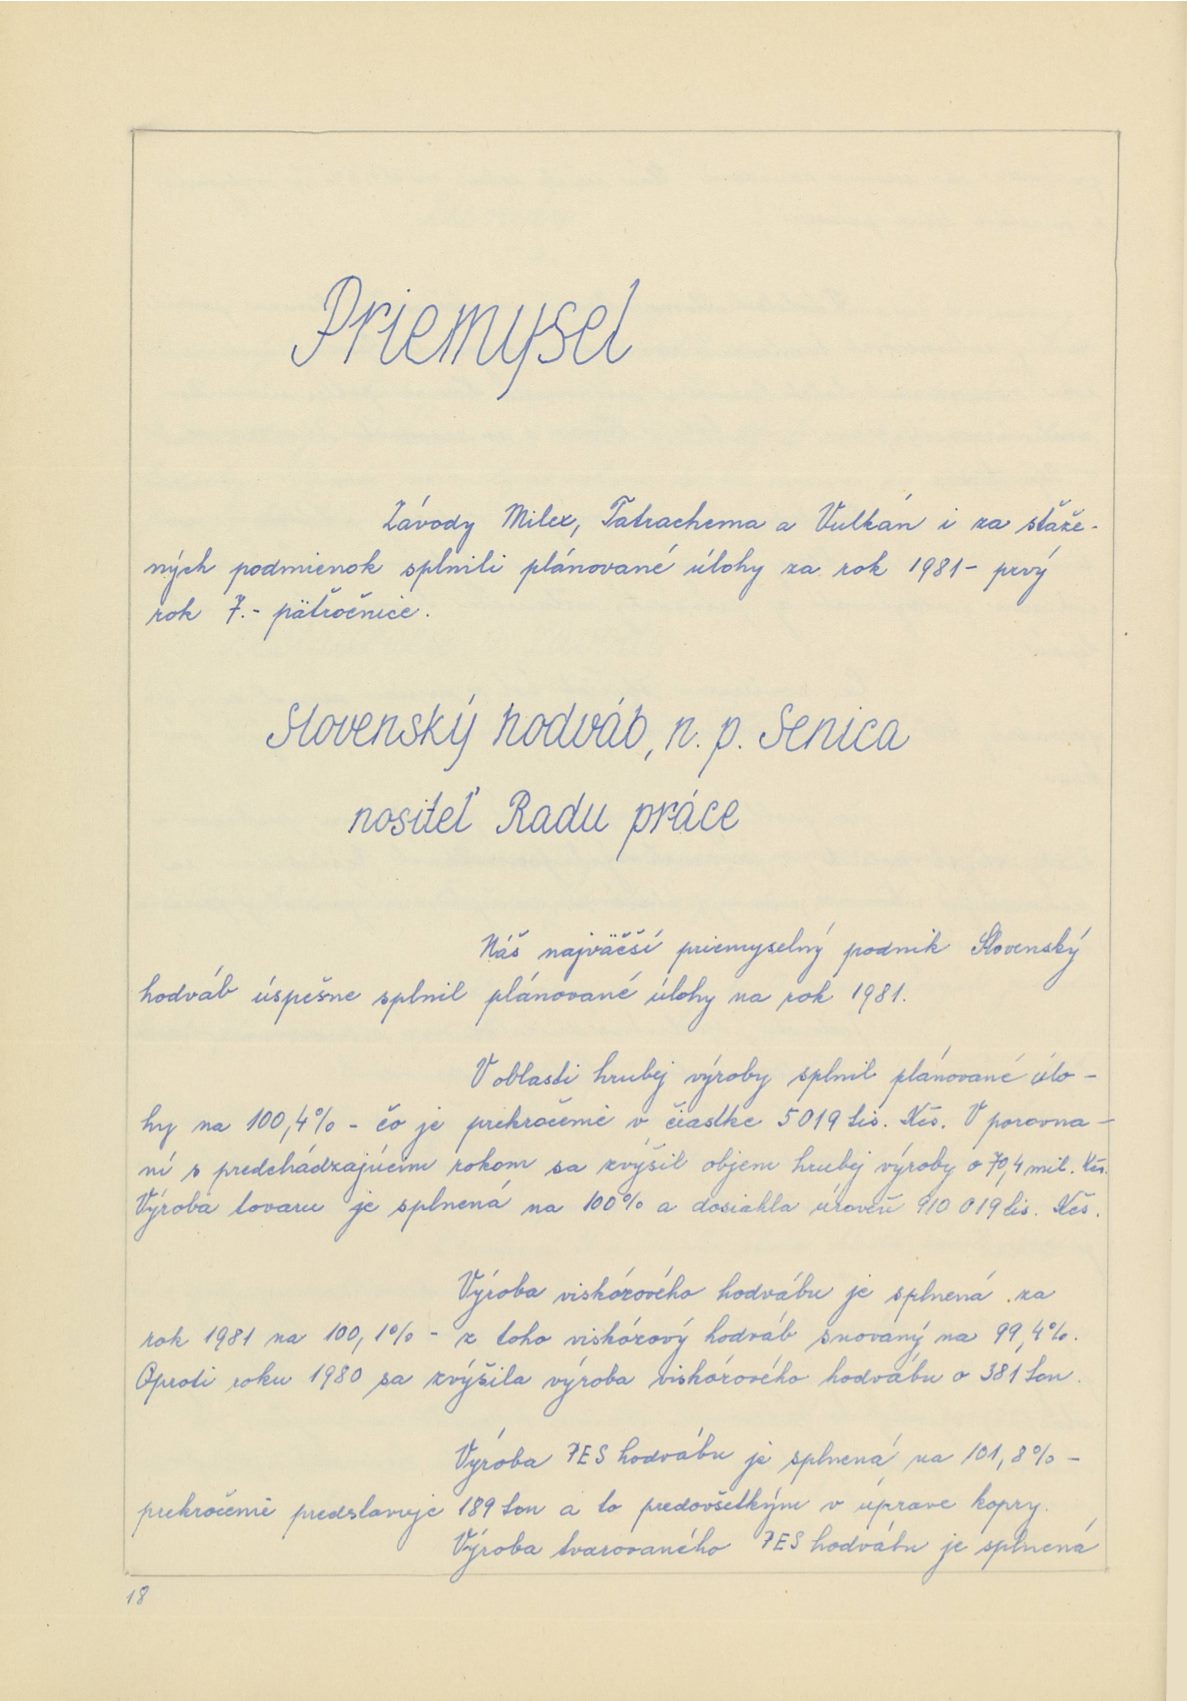 Priemysel
Závody Milex, Tatrachema a Vulkán i za sťaže-
ných podmienok splnili plánované úlohy za rok 1981 - prvý
rok 7.- päťročnice.
Slovenský hodváb, n. p. Senica
nositeľ Radu práce
Náš najväčší priemyselný podnik Slovenský
hodváb úspešne splnil plánované úlohy na rok 1981.
V oblasti hrubej výroby splnil plánované úlo-
hy na 100,4% - čo je prekročenie v čiastke 5019 tis. Kčs. V porovna-
ní s predchádzajúcim rokom sa zvýšil objem hrubej výroby o 70,4 mil. Kčs.
Výroba tovaru je splnená na 100% a dosiahla úroveň 910 019 tis. Kčs.
Výroba viskózového hodvábu je splnená za
rok 1981 na 100,1% - z toho viskózový hodváb snovaný na 99,4%.
Oproti roku 1980 sa zvýšila výroba viskózového hodvábu o 381 ton.
Výroba PES hodvábu je splnená na 101,8% -
prekročenie predstavuje 189 ton a to predovšetkým v úprave kopry.
Výroba tvarovaného PES hodvábu je splnená
18